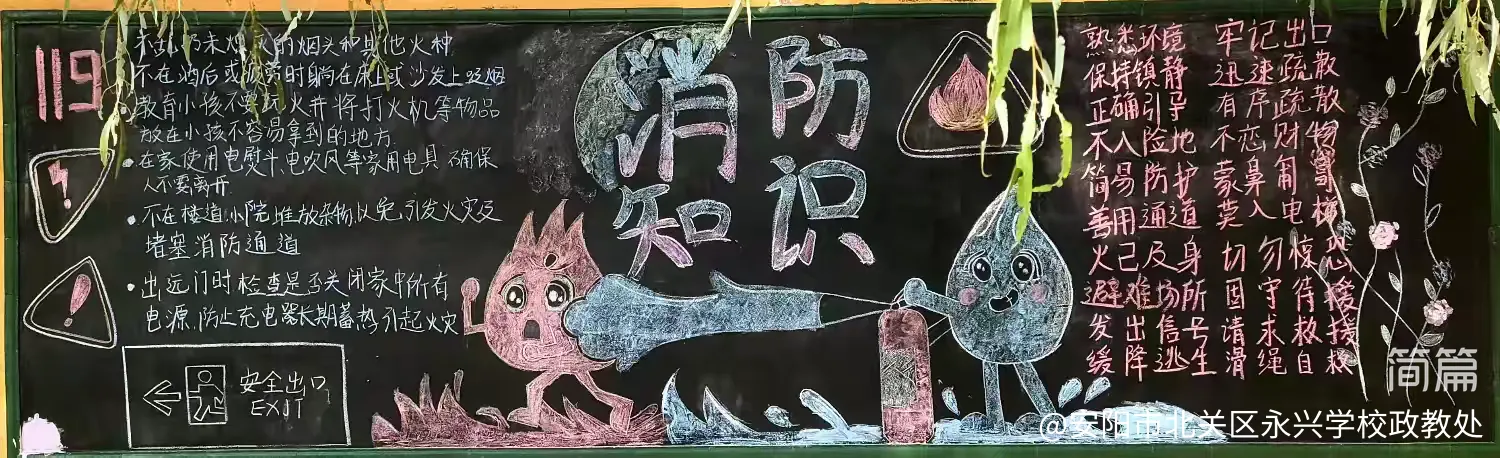 119
不乱扔未熄灭的烟头和其他火种
不在酒后或疲劳时躺在床上或沙发上吸烟
教育小孩不要玩火并将打火机等物品
放在小孩不容易拿到的地方
·在家使用电熨斗、电吹风等家用电具 确保
人不要离开
·不在楼道、小院堆放杂物,以免引发火灾及
堵塞消防通道
·出远门时检查是否关闭家中所有
电源,防止充电器长期蓄热引起火灾
安全出口
EXIT
消防
知识
熟悉环境 牢记出口
保持镇静 迅速疏散
正确引导 有序疏散
不入险地 不恋财物
简易防护 蒙鼻匍匐
善用通道 莫入电梯
火已及身 切勿惊恐
避难场所 固守待援
发出信号 请求救援
缓降逃生 滑绳自救
简篇
@安阳市北关区永兴学校政教处